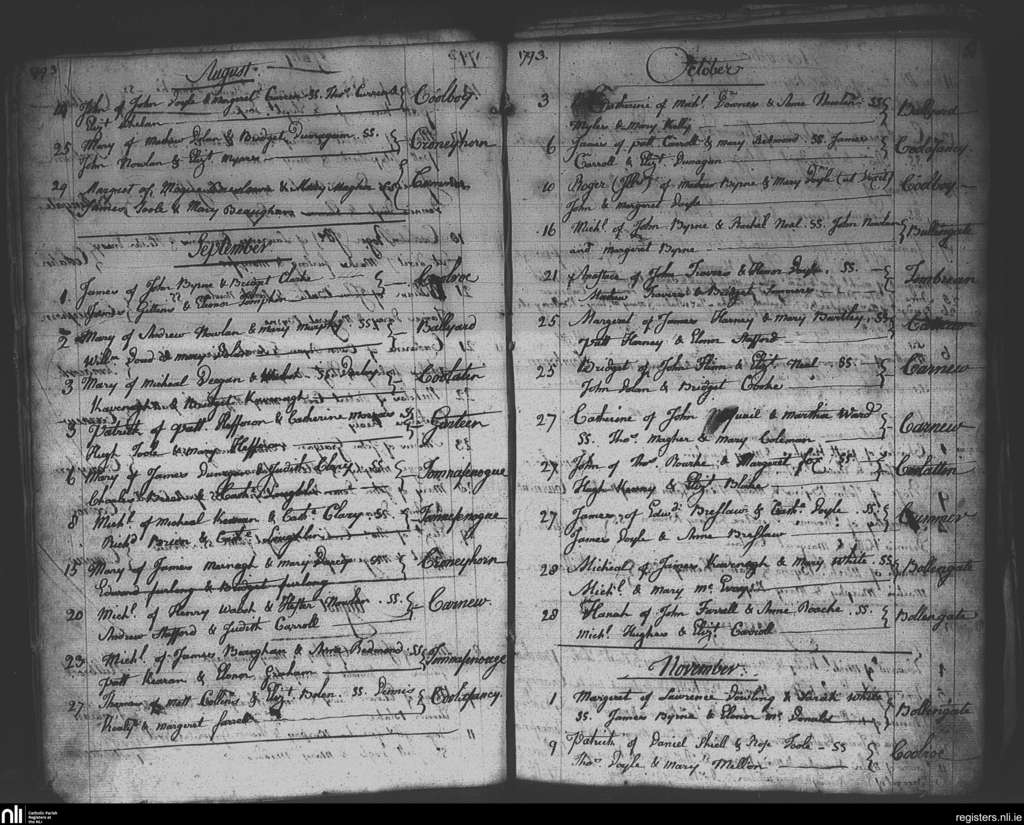 1793
August
John of John Doyle & Margret Curren SS. Thos. Curren &
Elizt Whelan
Coolboy
25 Mary of Mathew Dolan & Bridget Dunegan SS.
John Nowlan & Elizt Myers
Croneyhorn
29 Margret of & Mary SS
James Toole & Mary Beaughan
September
1 James of John Byrne & Bridget Clarke
James Gittens & Elenor Tomphin SS
Coolroe
2 Mary of Andrew Nowlan & Mary Murphy SS
Willm Doud & Mary
Ballyard
3 Mary of Micheal Deegan & SS Darby
Kavenagh & Bridget Kavenagh
Coolaten
5 Patrick of Patt. Heffernon & Catherine
Hugh Toole & Mary Heffern
6 Mary of James Dunegan & Judith Clary SS
Charles & Loughlin
Tomnafenogue
8 Michl. of Micheal Keernan & Cathe. Clary SS
Richd. Breen & Cathe. Loughlin
Tomnafenogue
15 Mary of James Mernagh & Mary Darcy SS
Edward furlong & Bridget furlong
Croneyhorn
20 Michl. of Henry Walsh & Hester Nowlan SS
Andrew Stafford & Judith Carroll
Carnew
23 Michl. of James Beaughan & Anne Redmond SS
Patt Kearan & Elenor Graham
Tomnafenogue
27 Thomas of Matt Collins & Elizt. Bolen SS. Dennis
Healy & Margaret farrell
Coolifancy
1793.
October
3 Catherine of Michl. Downes & Anne Nowlan SS
Myles & Mary Kelly
Ballyard
6 James of Patt Carroll & Mary Redmond SS. James
Carroll & Elizt Dunagan
Coolifancy
10 Roger of Mathew Byrne & Mary Doyle
John & Margaret Doyle
Coolboy
16 Michl. of John Byrne & Rachel Neal. SS. John Nowlan
and Margaret Byrne
Bullingate
21 Anstace of John Travers & Elenor Doyle. SS.
Mathew Travers & Bridget
25 Margaret of James Harney & Mary Bartley. SS
Patt Harney & Elenor Stafford
25 Bridget of John Flinn & Elizt. Neal SS.
John Dolan & Bridget Cooke
Carnew
27 Catherine of John Quail & Marthia Ward
SS. Thos. Magher & Mary Coleman
Carnew
27 John of Thos. Rourke & Margaret fox SS
Hugh & Elizt Blake
Coolatten
27 James of Edwd. Breslaw & Cathe. Doyle SS.
James Doyle & Anne Breslaw
28 Micheal of James Kavenagh & Mary White. SS
Michl. & Mary
Bollengate
28 Hanah of John Farrell & Anne Roache. SS.
Michl. Hughes & Elizt. Carroll
Bollengate
November.
1 Margaret of Lawrence Dowling & Sarah White
SS. James Byrne & Elenor Mc Donald
Bollengate
9 Patrick of Daniel Shiell & Rose Toole SS
Thos. Doyle & Mary Mellon
Coolroe
nli
Catholic Parish
Registers at
the NLI
registers.nli.ie